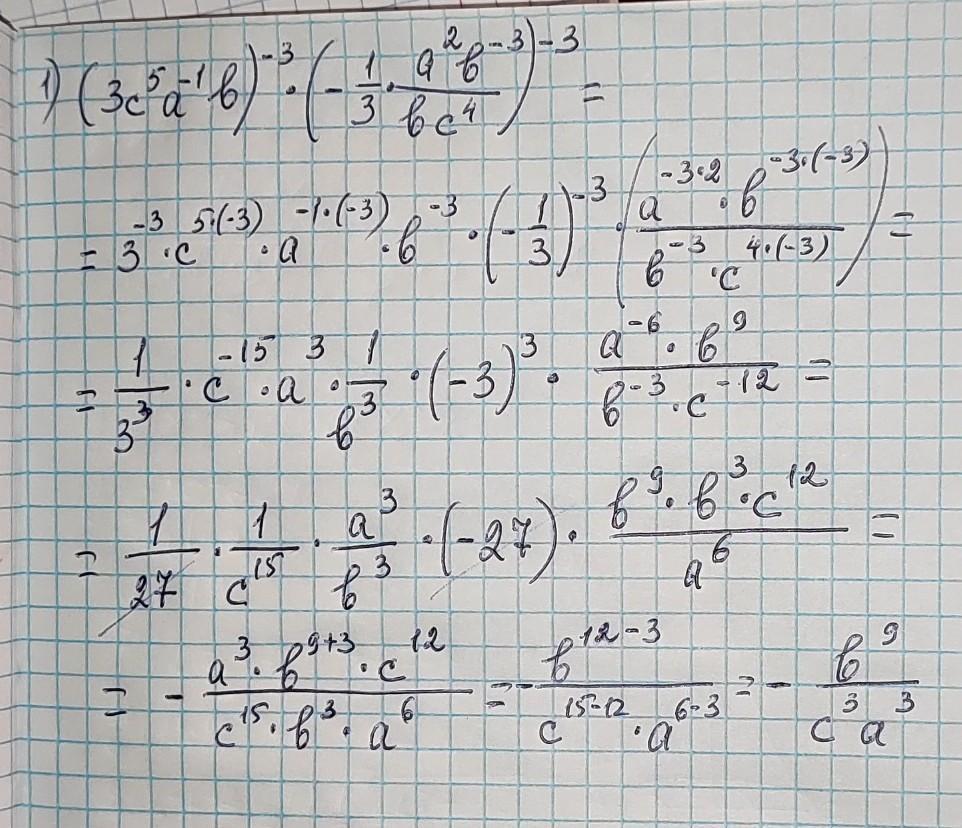 1) (3c⁵a⁻¹b)⁻³ · (-1/3 · a²b⁻³/bc⁴)⁻³ =
= 3⁻³ · c⁵·⁽⁻³⁾ · a⁻¹·⁽⁻³⁾ · b⁻³ · (-1/3)⁻³ · (a⁻³·² · b⁻³·⁽⁻³⁾/b⁻³ · c⁴·⁽⁻³⁾) =
= 1/3³ · c⁻¹⁵ · a³ · 1/b³ · (-3)³ · a⁻⁶ · b⁹/b⁻³ · c⁻¹² =
= 1/27 · 1/c¹⁵ · a³/b³ · (-27) · b⁹ · b³ · c¹²/a⁶ =
= - a³ · b⁹⁺³ · c¹²/c¹⁵ · b³ · a⁶ = - b¹²⁻³/c¹⁵⁻¹² · a⁶⁻³ = - b⁹/c³a³